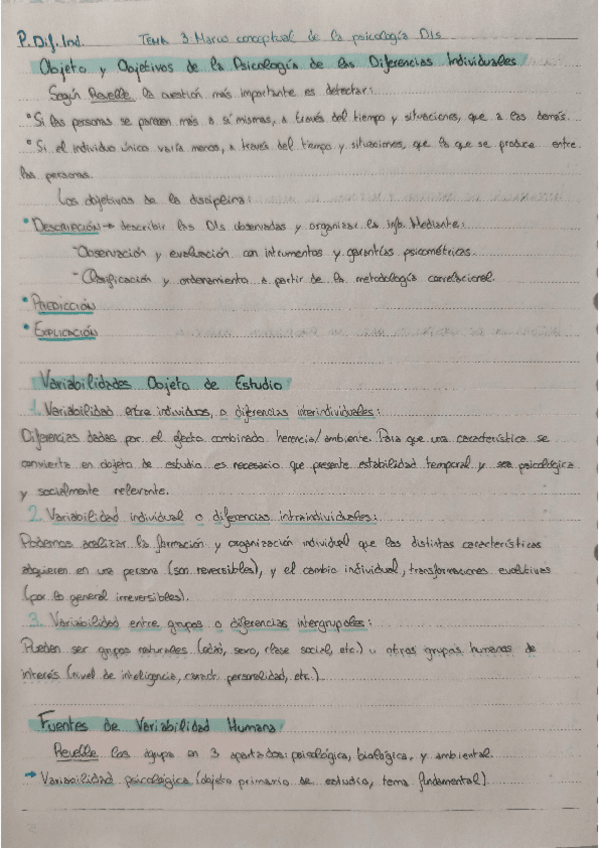 P. Dif. Ind. TEMA 3 Marco conceptual de la psicología DIs
Objeto y Objetivos de la Psicología de las Diferencias Individuales
Según Revelle la cuestión más importante es detectar:
• Si las personas se parecen más a sí mismas, a través del tiempo y situaciones, que a las demás.
• Si el individuo único varía menos, a través del tiempo y situaciones, que lo que se produce entre
las personas.
Los objetivos de la disciplina:
• DESCRIPCIÓN → describir las DIs observadas y organizar la info. Mediante:
- Observación y evaluación con intrumentos y garantías psicométricas.
- Clasificación y ordenamiento a partir de la metodología correlacional.
• PREDICCIÓN
• EXPLICACIÓN
Variabilidades Objeto de Estudio
1. Variabilidad entre individuos, o diferencias interindividuales:
Diferencias dadas por el efecto combinado herencia/ambiente. Para que una característica se
convierta en objeto de estudio es necesario que presente estabilidad temporal y sea psicológica
y socialmente relevante.
2. Variabilidad individual o diferencias intraindividuales:
Podemos analizar la formación y organización individual que las distintas características
adquieren en una persona (son reversibles), y el cambio individual, transformaciones evolutivas
(por lo general irreversibles).
3. Variabilidad entre grupos o diferencias intergrupales:
Pueden ser grupos naturales (edad, sexo, clase social, etc.) u otros grupos humanos de
interés (nivel de inteligencia, caract. personalidad, etc.)
Fuentes de Variabilidad Humana
Revelle las agupa en 3 apartados: psicológica, biológica, y ambiental.
→ Variabilidad psicológica (objeto primario de estudio, tema fundamental)